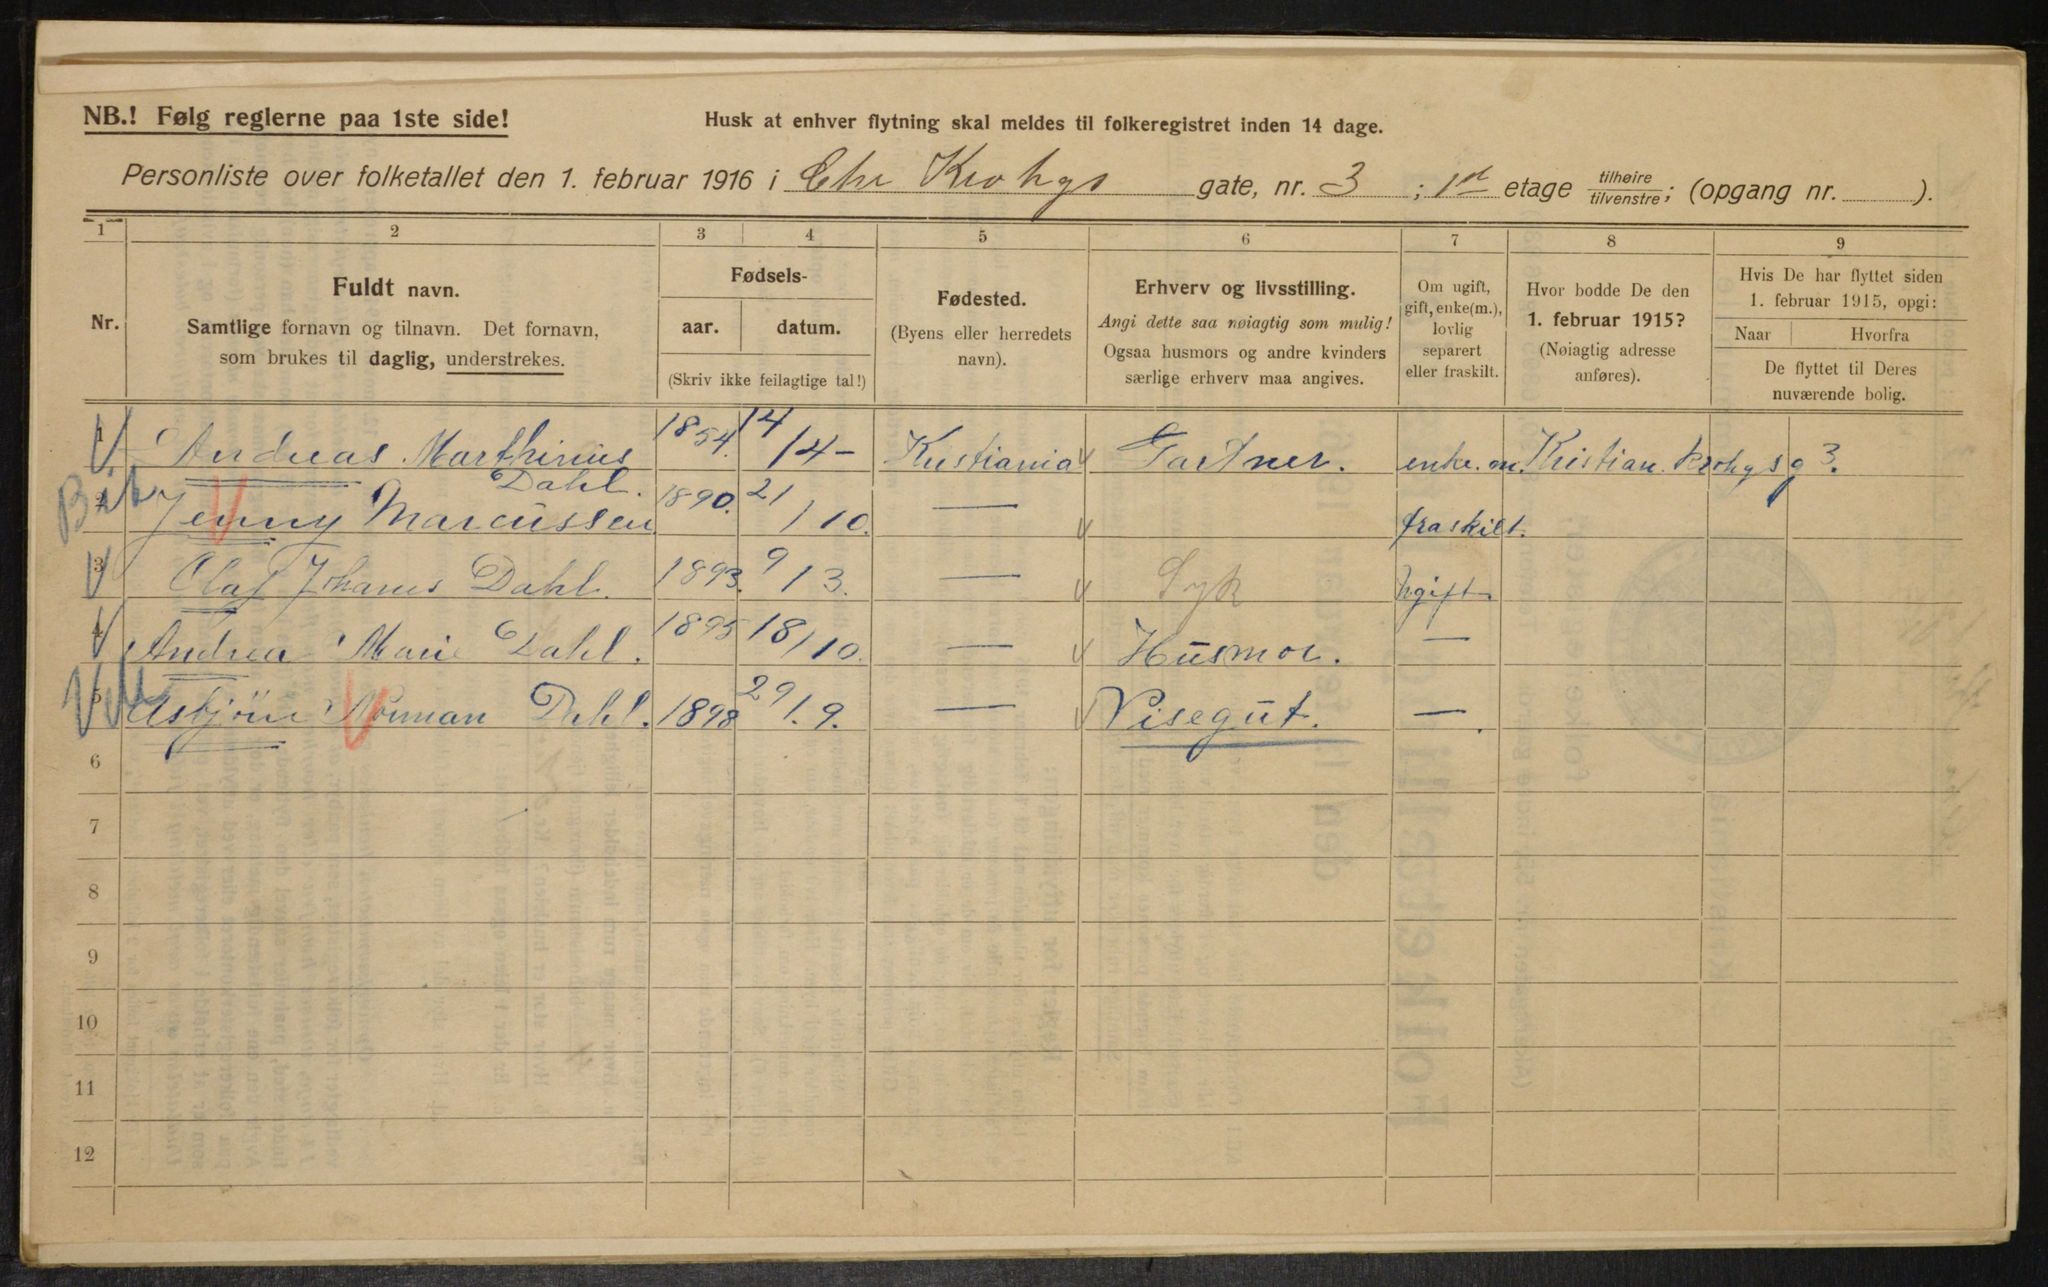 NB.! Følg reglerne paa 1ste side!
Husk at enhver flytning skal meldes til folkeregistret inden 14 dage.
Personliste over folketallet den 1. februar 1916 i Chr Krohgs gate, nr. 3 ; 1st etage tilhøire/tilvenstre; (opgang nr. ).
1 2 3 4 5 6 7 8 9
Nr.
Fuldt navn.
Samtlige fornavn og tilnavn. Det fornavn,
som brukes til daglig, understrekes.
Fødsels-
aar. datum.
(Skriv ikke feilagtige tal!)
Fødested.
(Byens eller herredets
navn).
Erhverv og livsstilling.
Angi dette saa nøiagtig som mulig!
Ogsaa husmors og andre kvinders
særlige erhverv maa angives.
Om ugift,
gift, enke(m.),
lovlig
separert
eller fraskilt.
Hvor bodde De den
1. februar 1915?
(Nøiagtig adresse
anføres).
Hvis De har flyttet siden
1. februar 1915, opgi:
Naar Hvorfra
De flyttet til Deres
nuværende bolig.
1 Andreas Marthinius Dahl. 1854. 14/4 - Kristiania Gartner. enke.m. Kristian Krohgs g 3.
2 Jenny Marcussen 1890. 21/10. — fraskilt.
3 Olaf Johanes Dahl. 1893. 9/3. — Syk Ugift
4 Andrea Marie Dahl. 1895 18/10. — Husmor. —
5 Asbjörn Norman Dahl. 1898 29/9. — Visegut. —
6
7
8
9
10
11
12